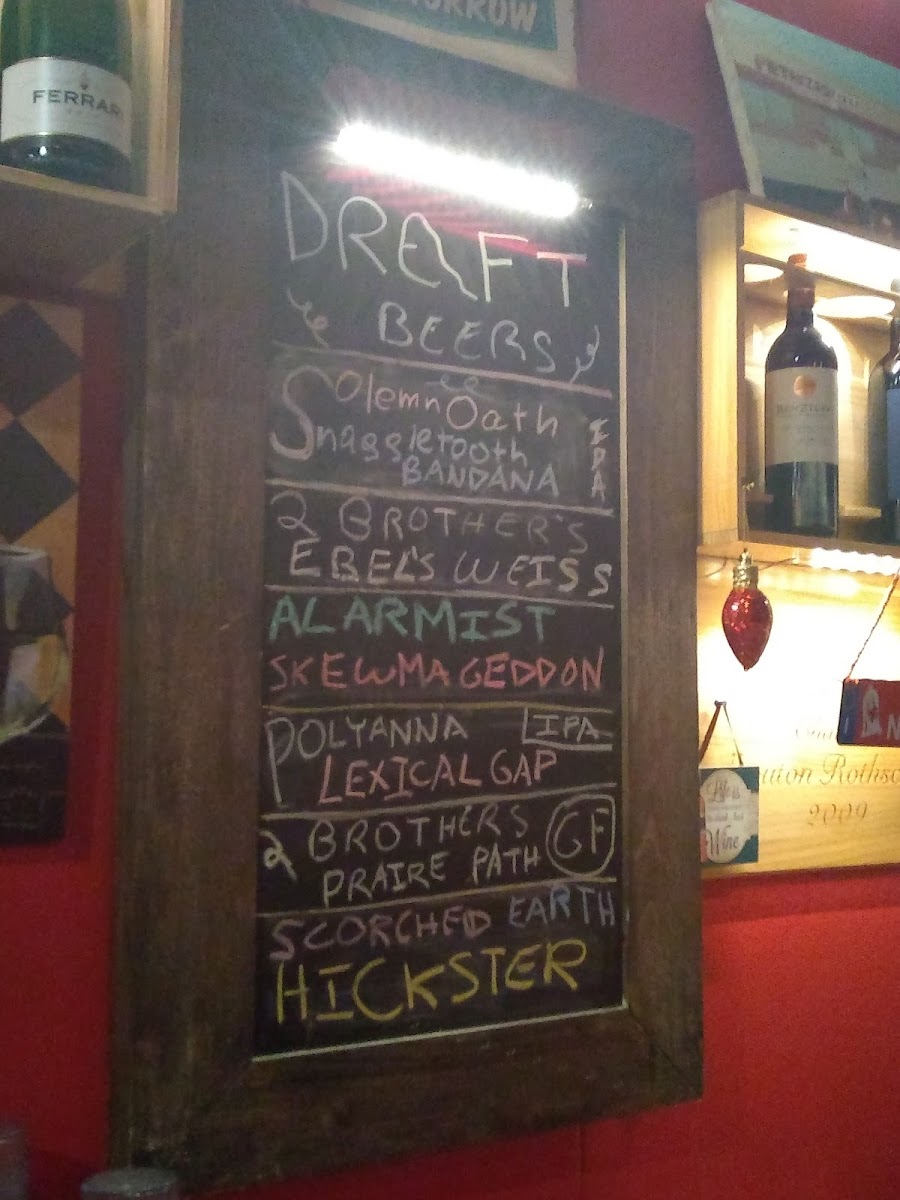 FERRARI
DRAFT
BEERS
Solemn Oath
Snaggletooth
BANDANA
IPA
2 BROTHER'S
EBEL'S WEISS
ALARMIST
SKEWMAGEDDON
POLYANNA LIPA
LEXICAL GAP
2 BROTHERS GF
PRAIRE PATH
SCORCHED EARTH
HICKSTER
Life is
Wine
2009